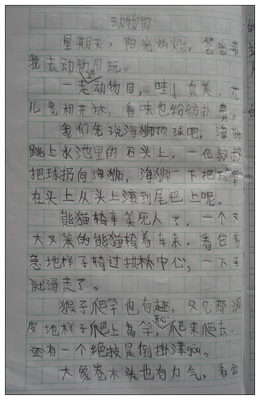 动物园
星期天，阳光灿烂，爸爸带
我去动物园玩。
一走动物园，哇！真美，花
儿竞相开放，香味也扑鼻，
我们先说海狮顶球吧，海狮
跳上水池里的石头上，一位叔叔
把球扔向海狮，海狮一下把球
在头上从头上滚到尾巴上呢。
熊猫骑车笑死人了，一个又
大又笨的熊猫骑着车来，看它
急地样子骑过损林中心，一下子
就滑走了。
猴子爬竿也有趣，只见那调
皮地样子爬上高竿，爬来爬去，
还有一个绝技是倒挂
大象卷木头也有力气，看它